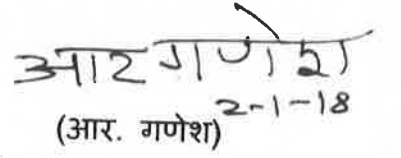 आर गणेश
2-1-18
(आर. गणेश)